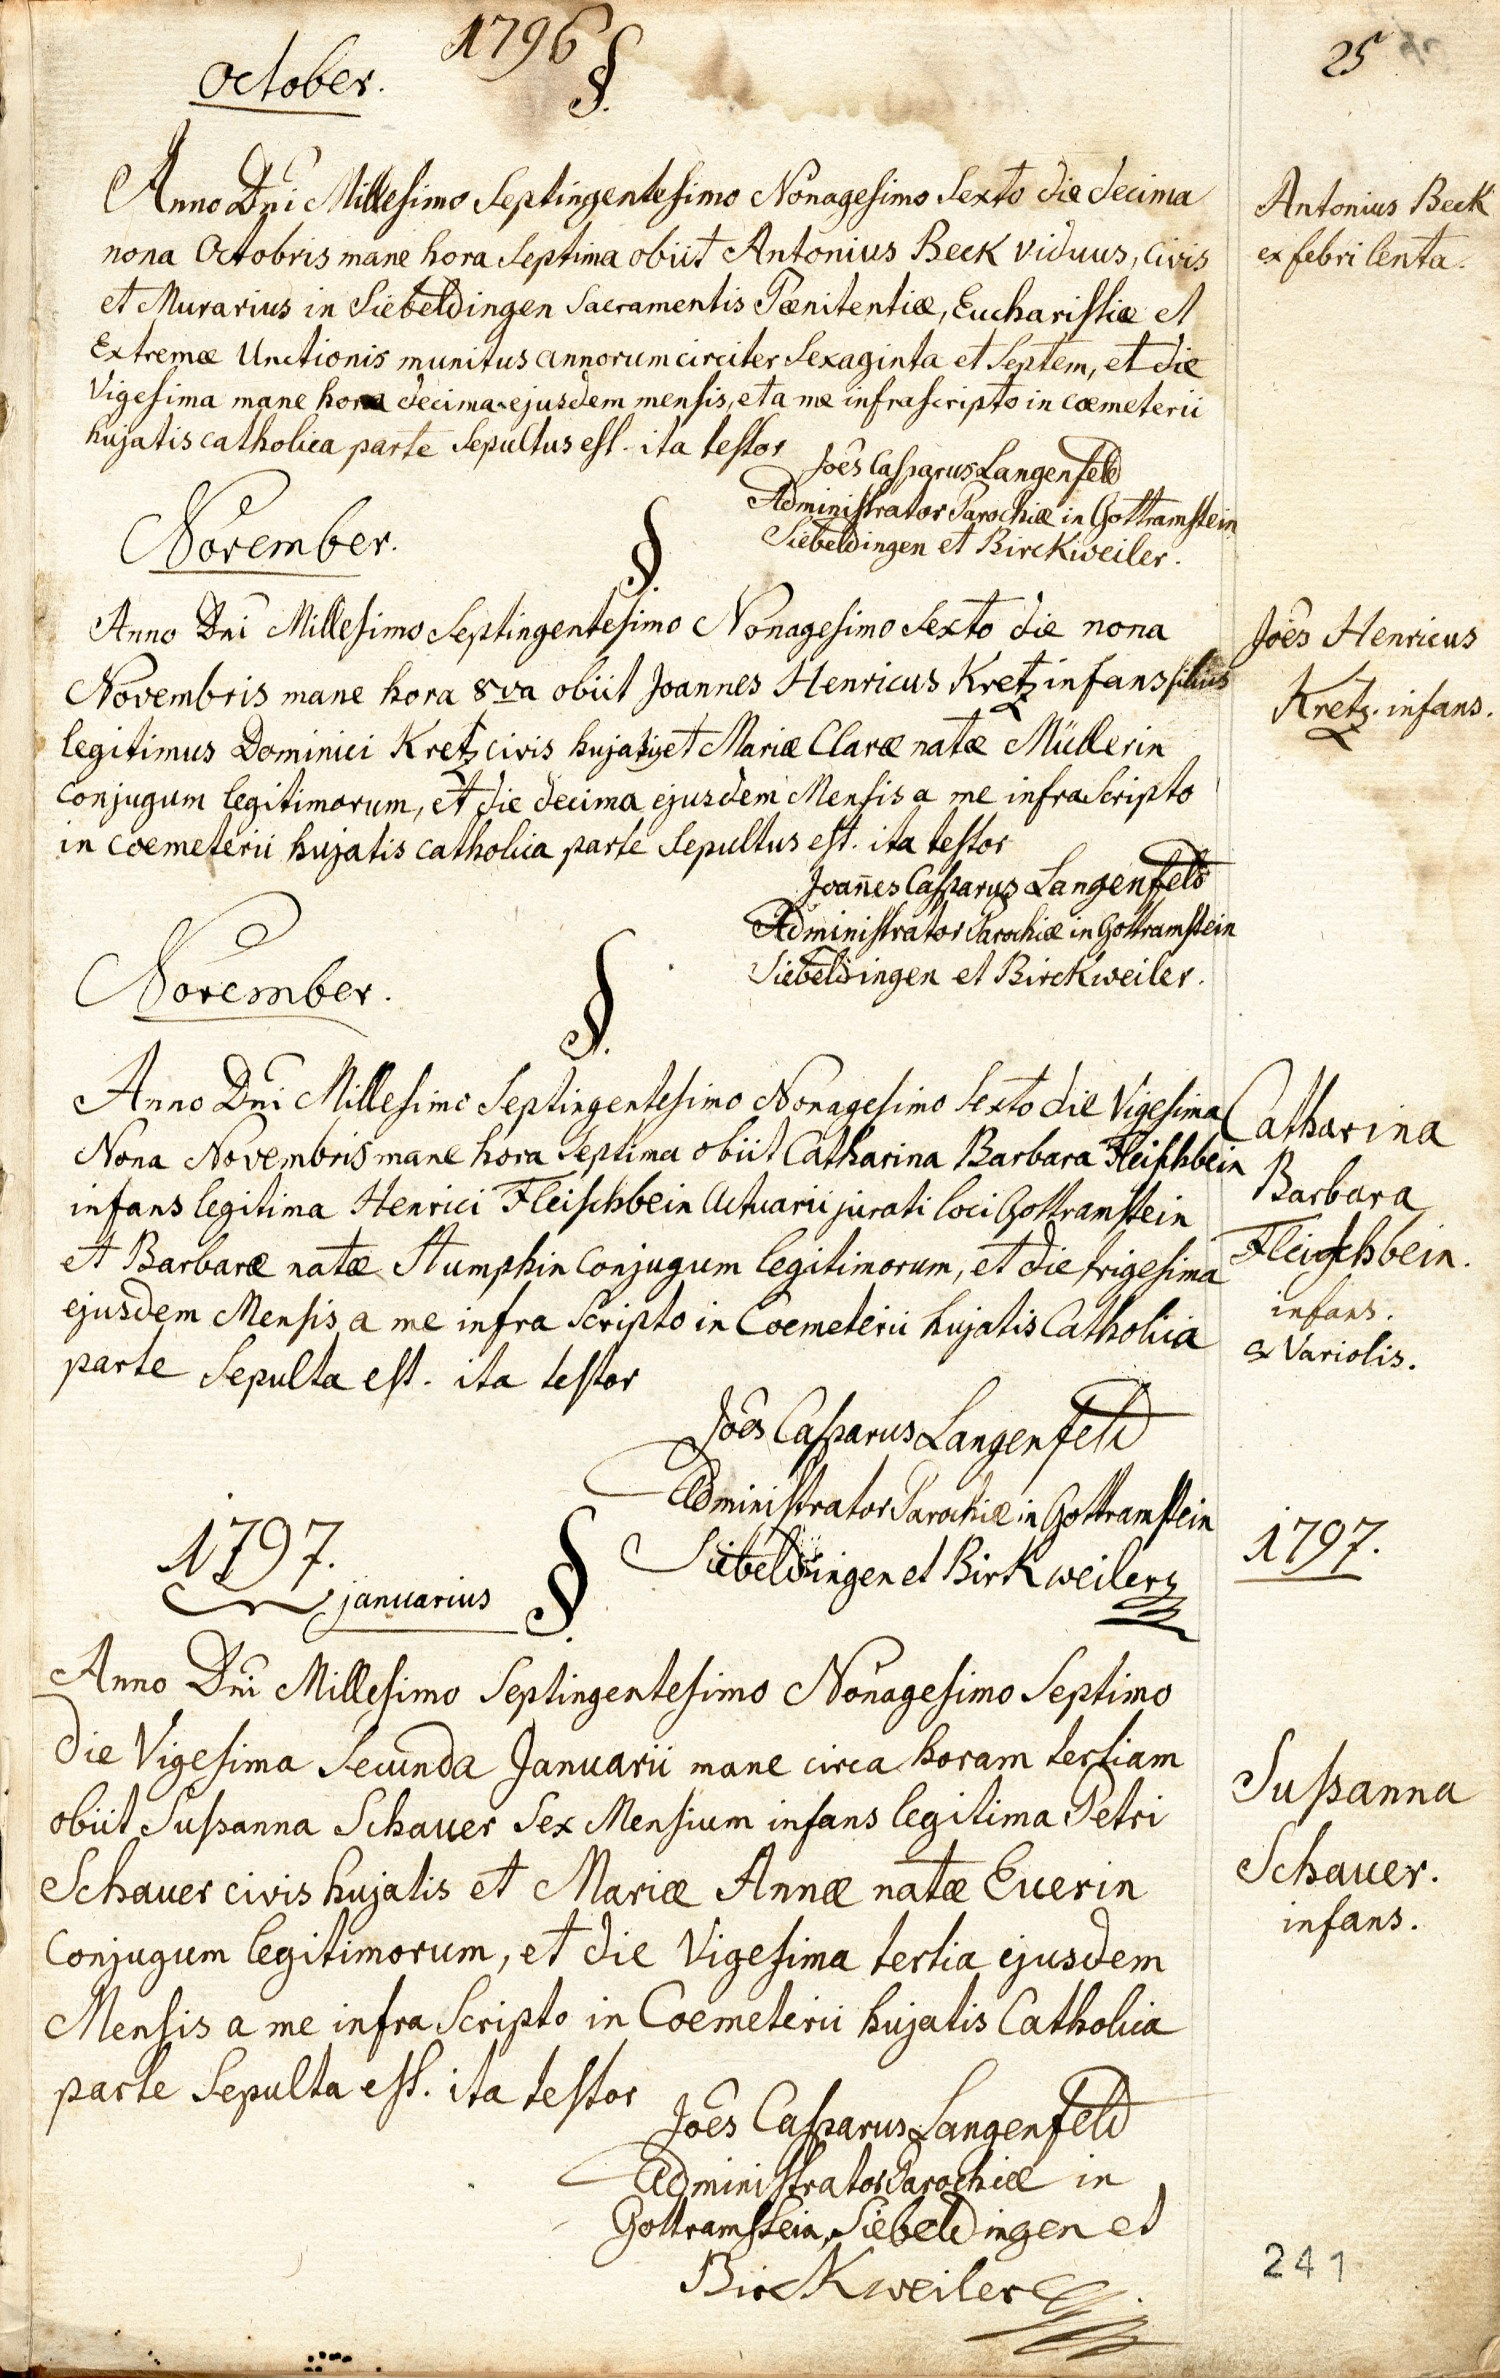 1796
25
October.
§.
Anno Dni Millesimo Septingentesimo Nonagesimo Sexto die decima
nona Octobris mane hora Septima obiit Antonius Beck viduus, civis
et Murarius in Siebeldingen Sacramentis Pœnitentiæ, Eucharistiæ et
Extremæ Unctionis munitus annorum circiter Sexaginta et Septem, et die
Vigesima mane hora decima ejusdem mensis, et a me infrascripto in cœmeterii
hujatis catholica parte Sepultus est. ita testor
Antonius Beck
ex febri lenta.
Joês Casparus Langenfeld
Administrator Parochiæ in Gottramstein
Siebeldingen et Birckweiler.
November.
§.
Anno Dni Millesimo Septingentesimo Nonagesimo Sexto die nona
Novembris mane hora 8va obiit Joannes Henricus Kretz infans filius
legitimus Dominici Kretz civis hujatis et Mariæ Claræ natæ Müllerin
conjugum legitimorum, et die decima ejusdem Mensis a me infraScripto
in coemeterii hujatis catholica parte Sepultus est. ita testor
Joês Henricus
Kretz. infans.
Joañes Casparus Langenfeld
Administrator Parochiæ in Gottramstein
Siebeldingen et Birckweiler.
November.
§.
Anno Dni Millesimo Septingentesimo Nonagesimo Sexto die Vigesima
Nona Novembris mane hora Septima obiit Catharina Barbara Fleischbein
infans legitima Henrici Fleischbein Actuarii jurati loci Gottramstein
et Barbaræ natæ Stumphin conjugum legitimorum, et die trigesima
ejusdem Mensis a me infra Scripto in Coemeterii hujatis Catholica
parte Sepulta est. ita testor
Catharina
Barbara
Fleischbein.
infans.
ex Variolis.
Joês Casparus Langenfeld
Administrator Parochiæ in Gottramstein
Siebeldingen et Birkweiler
1797.
januarius
§.
1797.
Anno Dni Millesimo Septingentesimo Nonagesimo Septimo
die Vigesima Secunda Januarii mane circa horam tertiam
obiit Sußanna Schauer Sex Mensium infans legitima Petri
Schauer civis hujatis et Mariæ Annæ natæ Euerin
conjugum legitimorum, et die Vigesima tertia ejusdem
Mensis a me infra Scripto in Coemeterii hujatis Catholica
parte Sepulta est. ita testor
Sußanna
Schauer.
infans.
Joês Casparus Langenfeld
Administrator Parochiæ in
Gottramstein, Siebeldingen et
Birckweiler
241